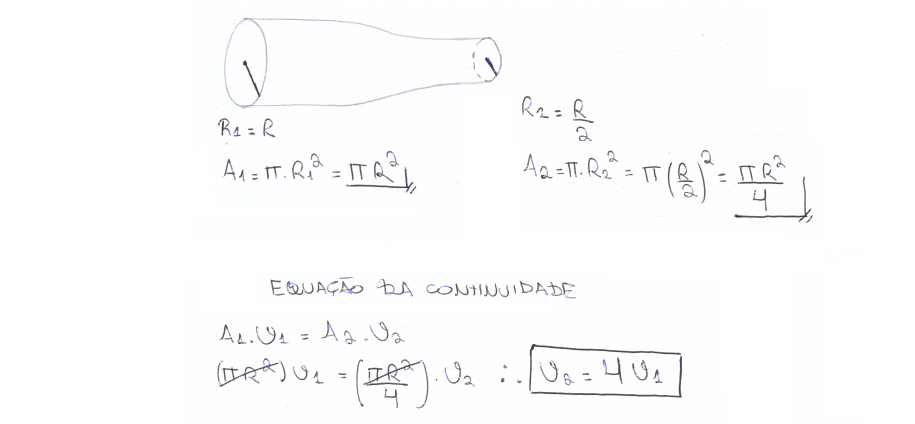 R1 = R
A1 = π.R1² = πR²
R2 = R/2
A2 = π.R2² = π(R/2)² = πR²/4
EQUAÇÃO DA CONTINUIDADE
A1.v1 = A2.v2
(πR²)v1 = (πR²/4).v2 ∴ v2 = 4v1